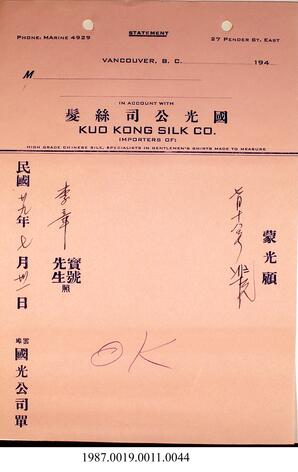 STATEMENT
PHONE: MARINE 4929
27 PENDER ST. EAST
VANCOUVER, B. C.
194
M
IN ACCOUNT WITH
髮絲司公光國
KUO KONG SILK CO.
IMPORTERS OF:
HIGH GRADE CHINESE SILK, SPECIALISTS IN GENTLEMEN'S SHIRTS MADE TO MEASURE
蒙光顧
李章
寶號
先生
照
民國廿九年七月卅一日
國光公司單
OK
1987.0019.0011.0044